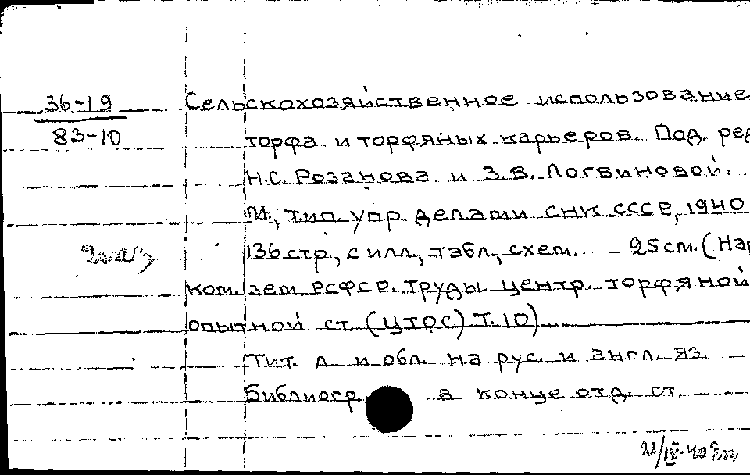 36-19
83-10
Сельскохозяйственное использование
торфа и торфяных карьеров. Под. ред
Н.С. Розанова и З.В. Логвиновой.
М., тип. упр. делами СНК СССР, 1940
136 стр., с илл., табл., схем. - 25 см. (Нар
ком. зем РСФСР. Труды центр. торфяной
опытной ст. (ЦТОС) Т. 10)
Тит. л. и обл. на рус. и англ. яз.
Библиогр. в конце отд. ст.